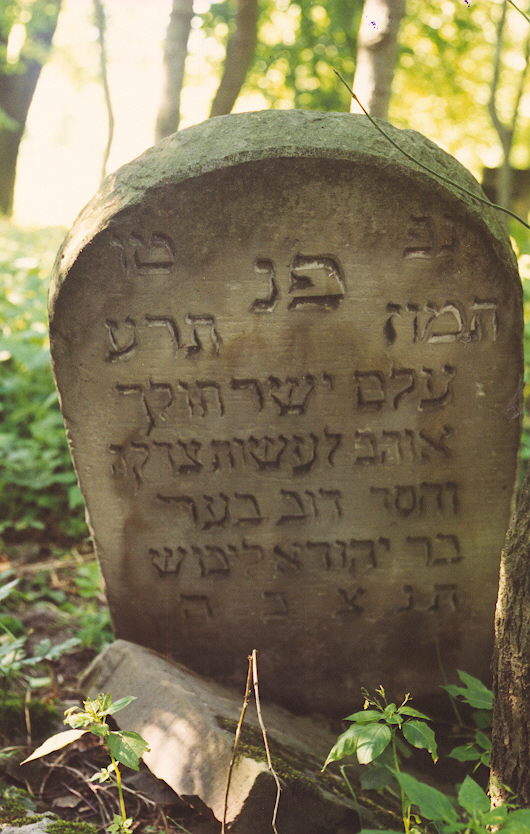 נפ טו
פנ
תמוז תרע
עלם ישר הולך
אוהב לעשות צדקה
וחסד דוב בער
בר יהודא ליטוש
תנצבה